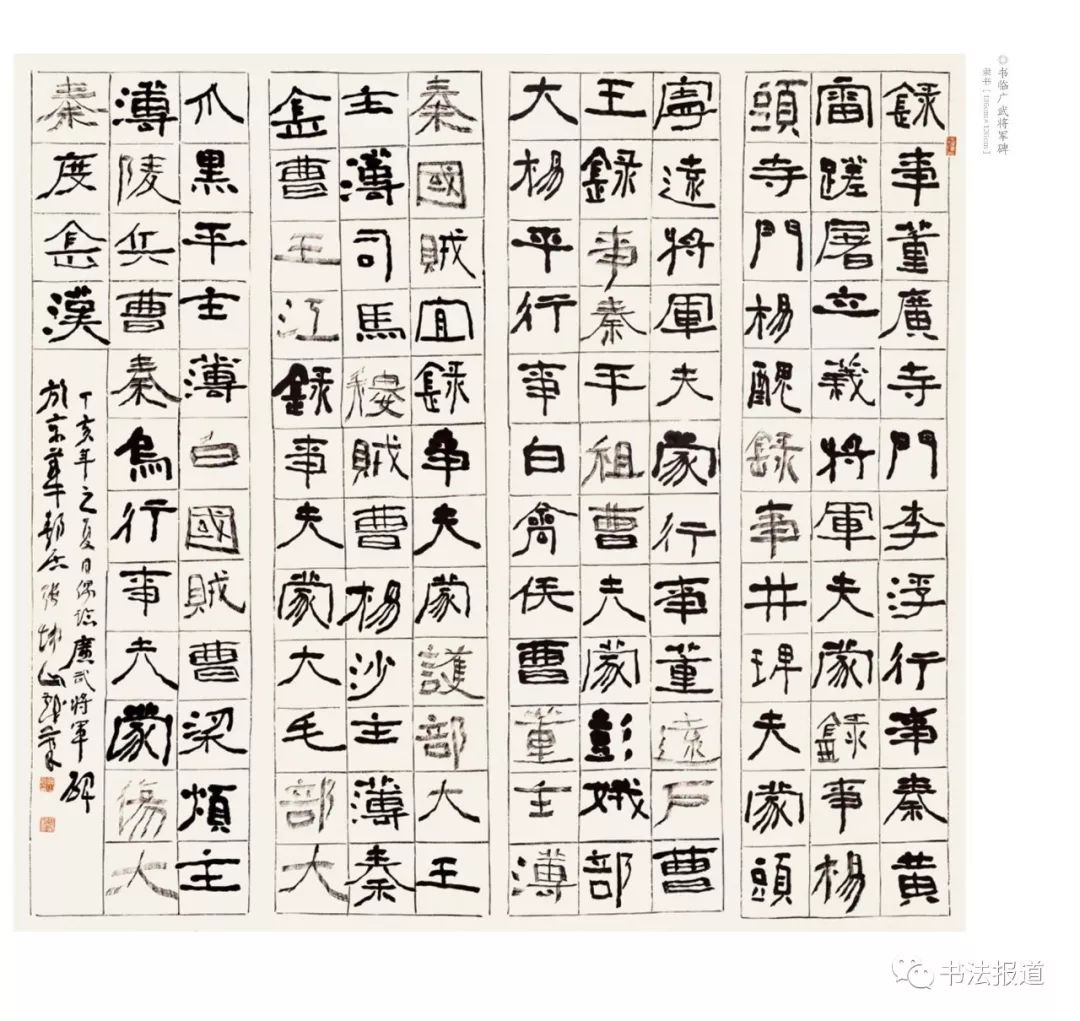 ◎书临广武将军碑
隶书 [136cm×126cm]
錄事董廣寺門李浮行事秦黄
雷蹉屠立義將軍夫蒙錄事楊
頭寺門楊醜錄事井琕夫蒙頭
寧遠將軍夫蒙行事董遠戶曹
王錄事秦平祖曹夫蒙彭娥部
大楊平行事白禽侯曹董主薄
秦國賊宜錄事夫蒙護部大王
主薄司馬賊曹楊沙主薄秦
曹王江錄事夫蒙大毛部大
爪黑平主薄白國賊曹梁煩主
薄陵兵曹秦烏行事夫蒙傷大
秦度漢
丁亥年之夏日偶臨廣武將軍碑
於京華張坤山
书法报道